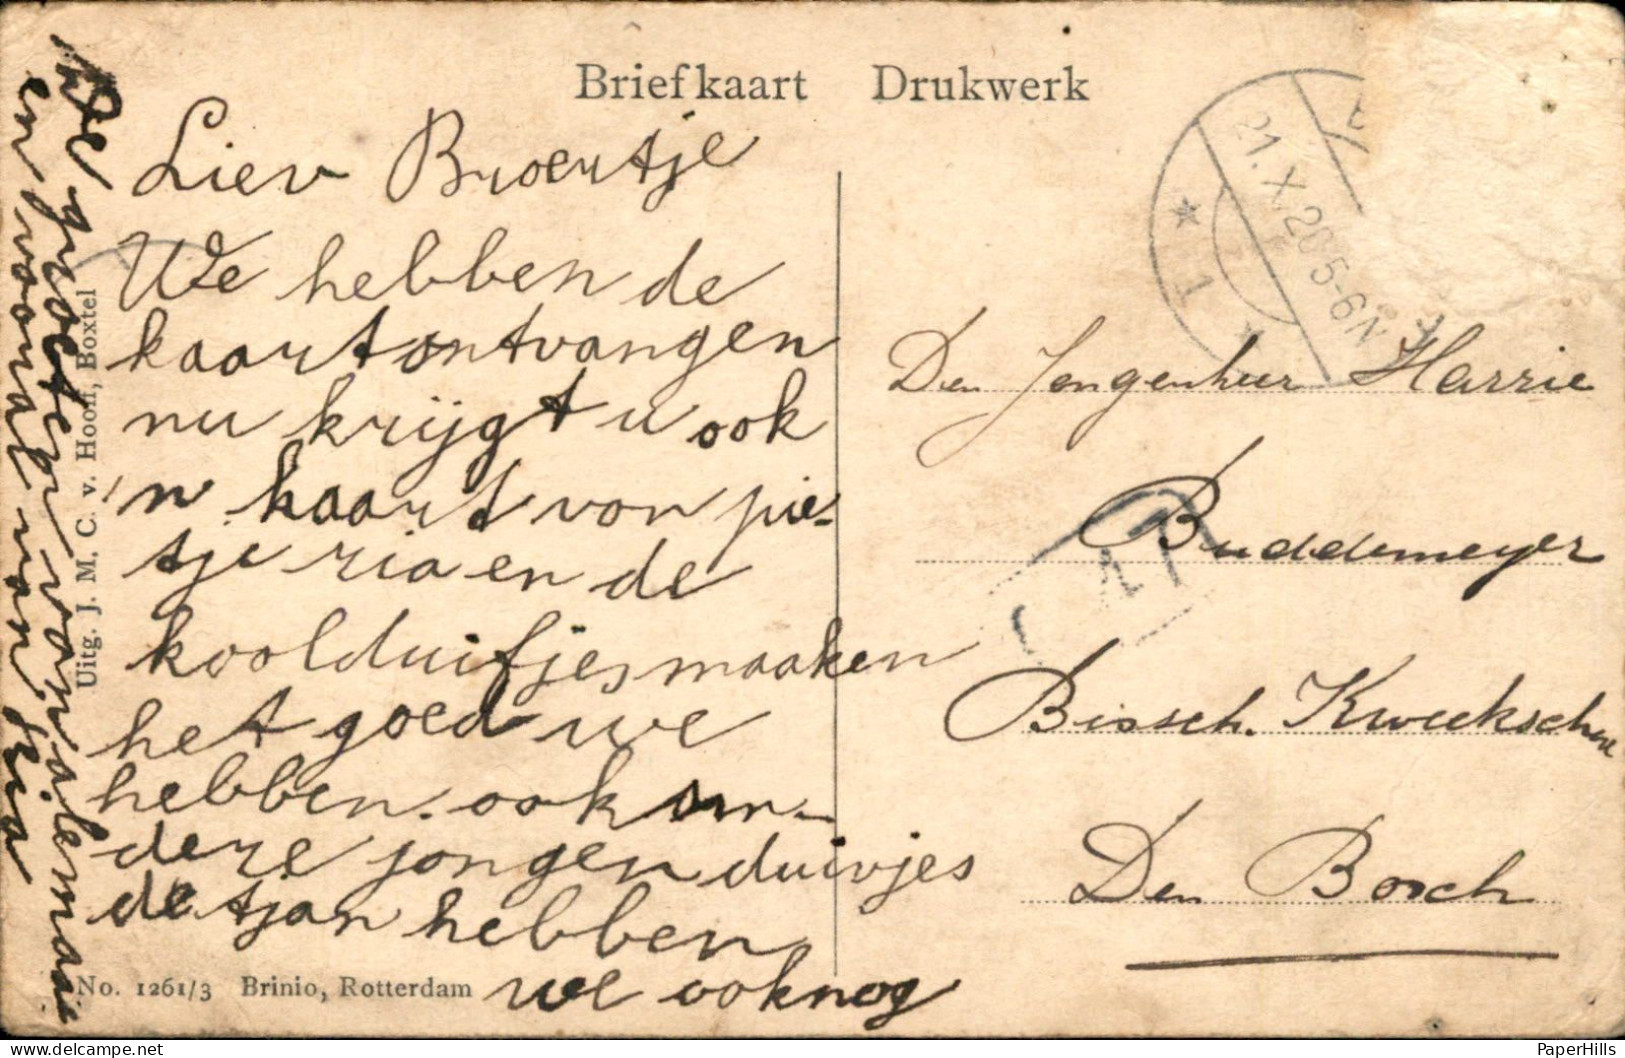 Briefkaart Drukwerk
Liev Broertje
We hebben de
kaart ontvangen
nu krijgt u ook
'n kaart von pie-
tje ria en de
koolduifjes maaken
het goed we
hebben. ook
dere jongen duivjes
de tjan hebben
we ook nog
De groeten von
en vooral van Ria
21.X.20 5-6N
1
Den Jongenheer Harrie
Buddemeyer
Bissch. Kweekschool
Den Bosch
T
Uitg. J. M. C. v. Hooff, Boxtel
No. 1261/3 Brinio, Rotterdam
PaperHills